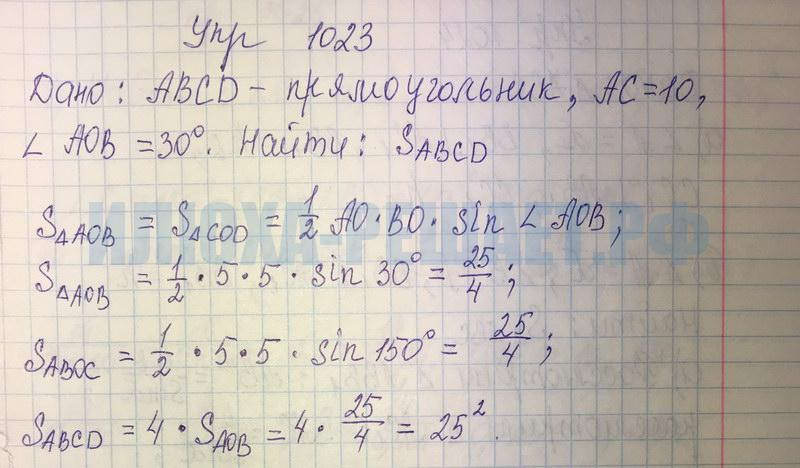 Упр 1023
Дано: ABCD – прямоугольник, AC=10,
∠ AOB =30°. Найти: SABCD
ИЛЮХА-РЕШАЕТ.РФ
S△AOB = S△COD = 1/2 AO·BO· sin ∠ AOB;
S△AOB = 1/2 · 5 · 5 · sin 30° = 25/4 ;
S△BOC = 1/2 · 5 · 5 · sin 150° = 25/4 ;
SABCD = 4 · SAOB = 4 · 25/4 = 25².